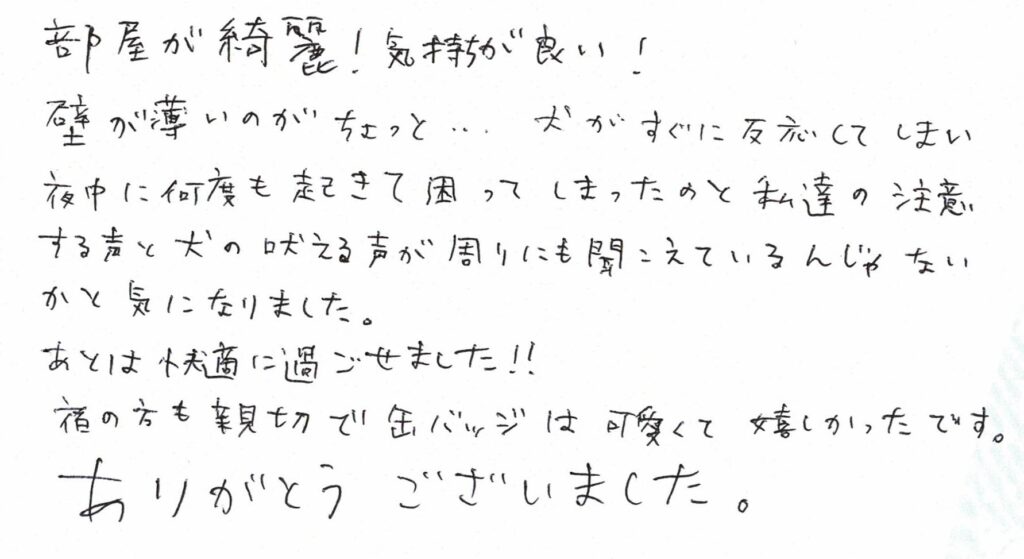 部屋が綺麗!気持ちが良い!
壁が薄いのがちょっと… 犬がすぐに反応してしまい
夜中に何度も起きて困ってしまったのと私達の注意
する声と犬の吠える声が周りにも聞こえているんじゃない
かと気になりました。
あとは快適に過ごせました!!
宿の方も親切で缶バッジは可愛くて嬉しかったです。
ありがとうございました。